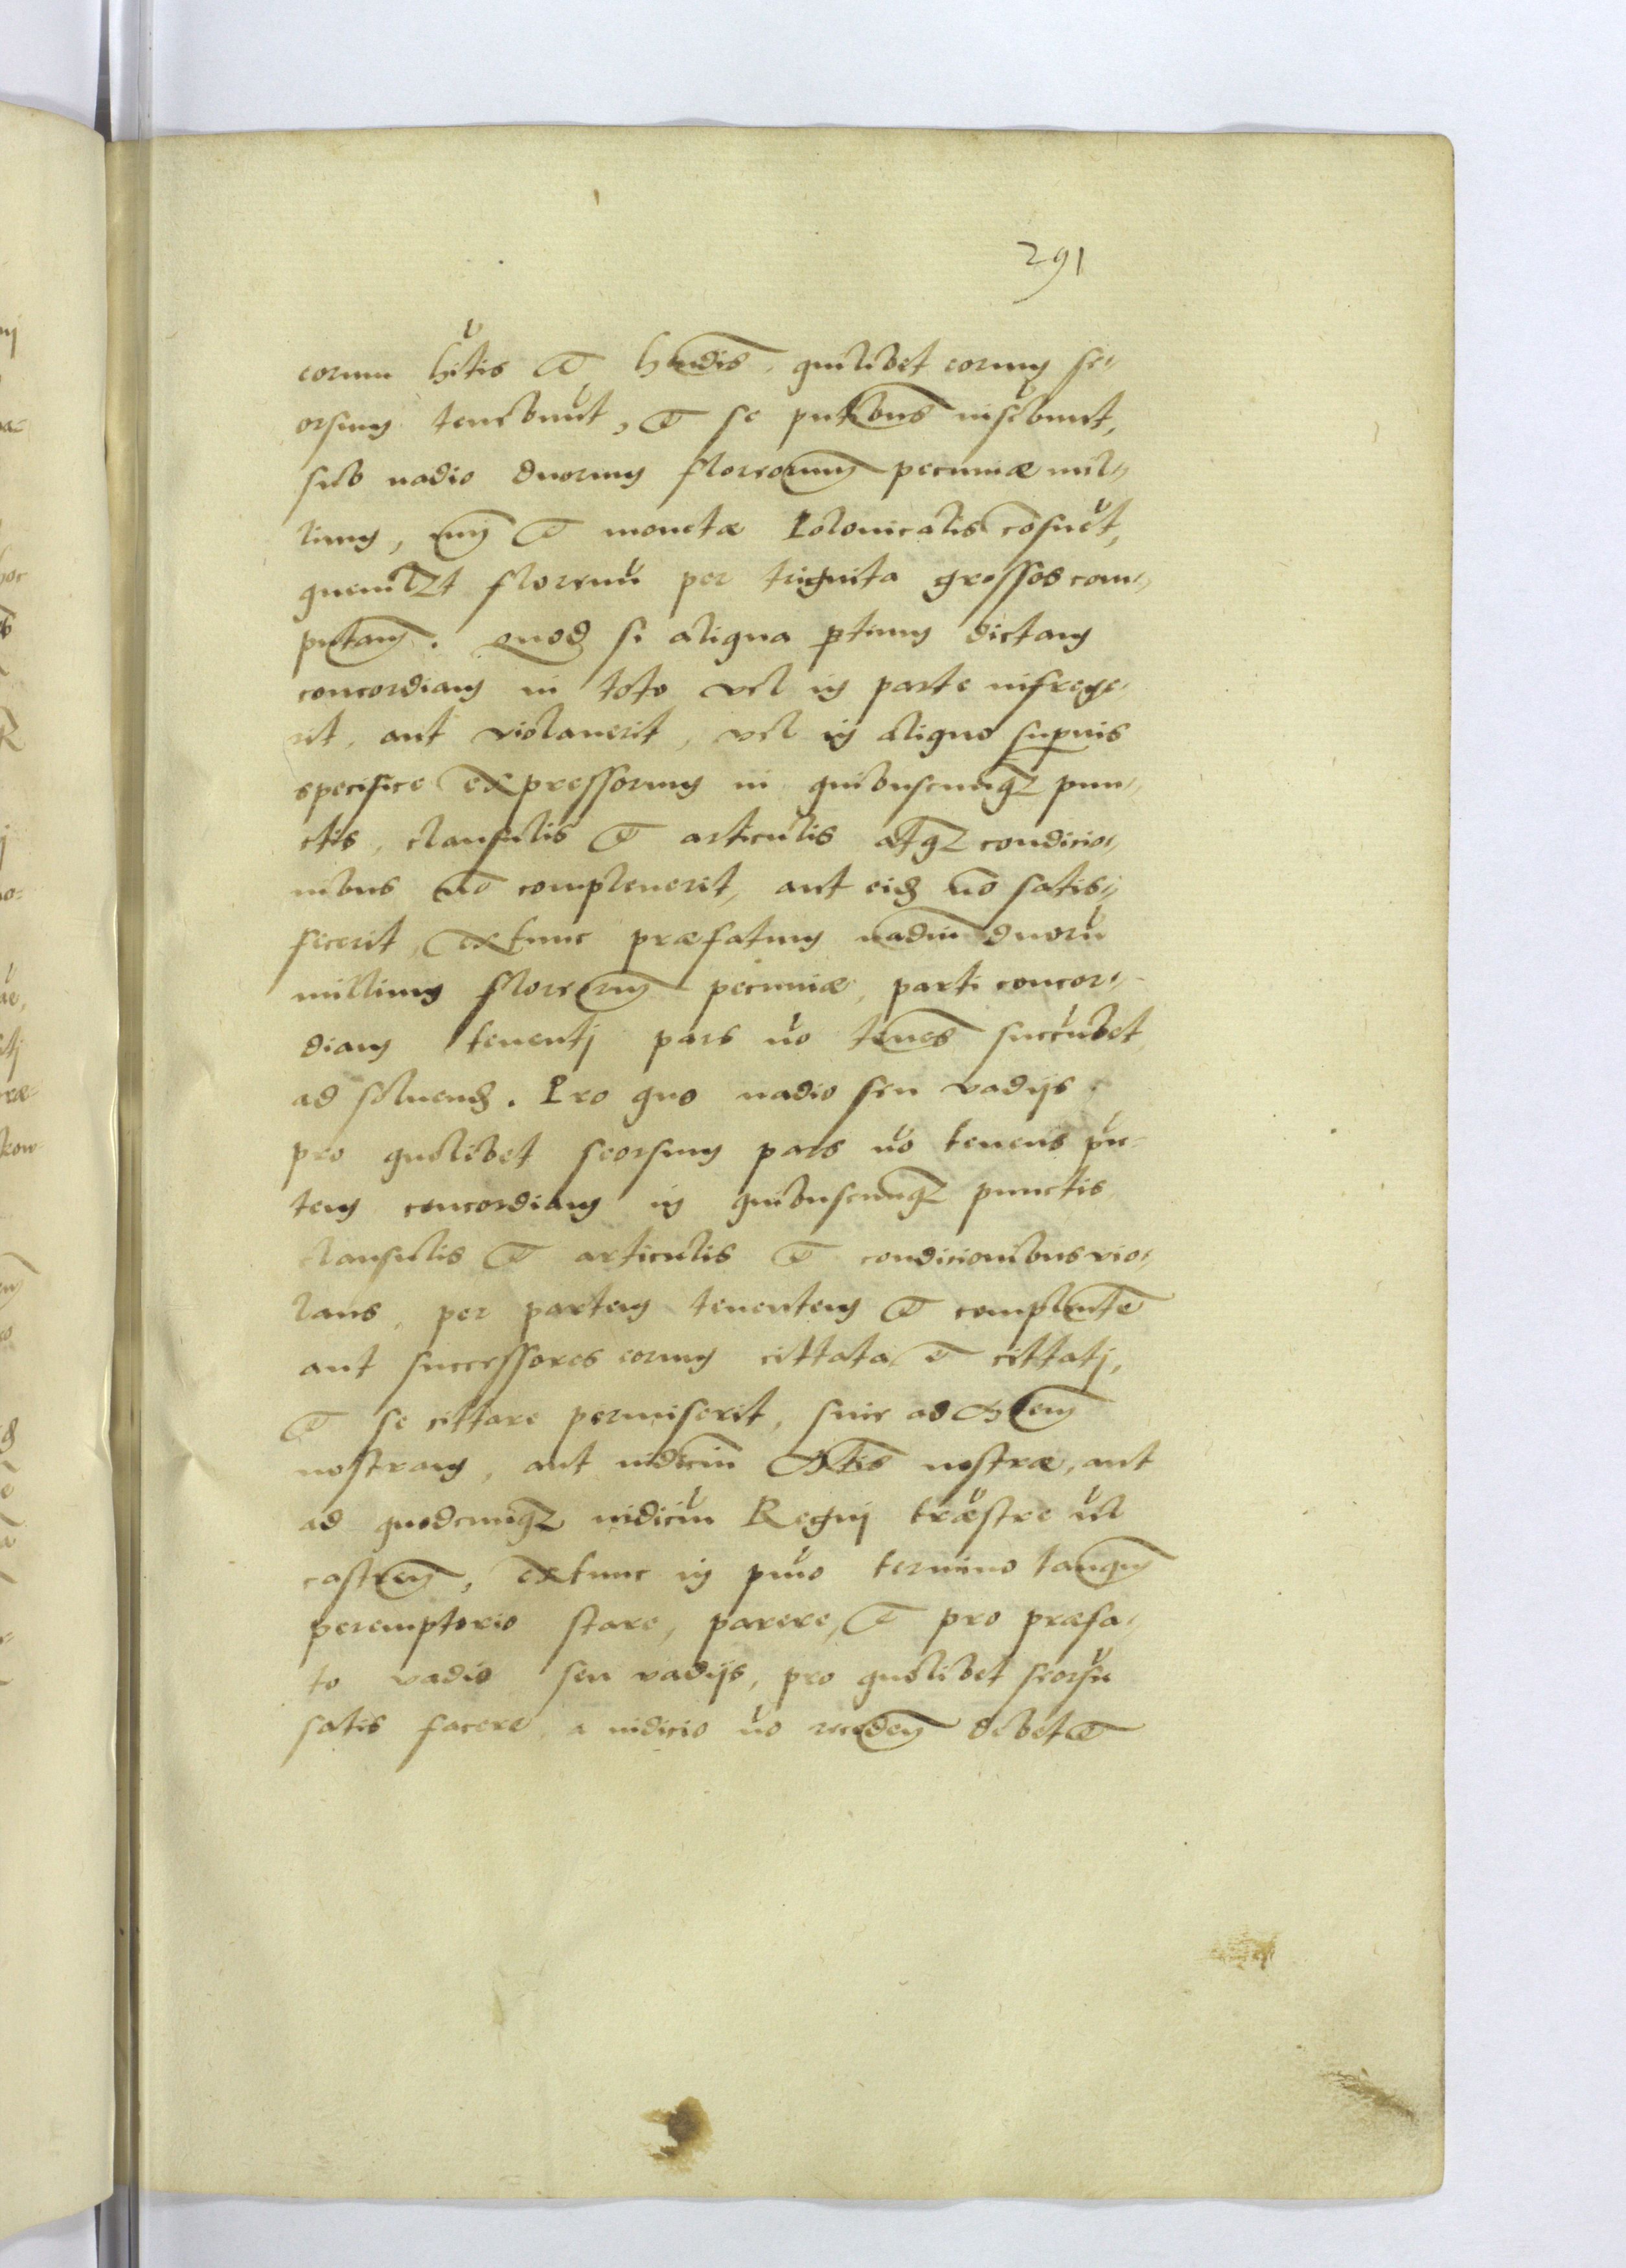 291
eorum hitis et hndis, quilibet eorum se„
orsum tenebunt, et se pntibus inscribunt,
sub vadio duorum florenorum pecuniæ mil„
lium, mny et monetæ Polonicalis cosuet,
quemlzt florenu per triginta grossos com„
putany. Quod si aliqua ptium dictam
concordiam in toto vel in parte infrege„
rit, aut violauerit, vel in aliquo supius
specifice expressorum in quibuscunqz pun„
ctis, clausulis et articulis atqz condicio„
nibus no compleuerit, aut eisd no satis„
fecerit, extunc præfatum vadiu duoru
millium florenrm pecuniæ, parti concor„
diam tenentj pars no tenes succubet
ad soluend. Pro quo vadio seu vadijs
pro quolibet seorsum pars no tenens pn=
tem concordiam in quibuscunqz punctis
clausulis et articulis et condicionibus vio„
lans, per partem tenentem et complente
aut successores eorum cittata et cittatj,
et se cittare permiserit, siue ad Mtem
nostram, aut iudiciu Mtis nostræ, aut
ad quodcunqz iudiciu Regnj træstre vl
castren, extunc in pmo termino tanqm
peremptorio stare, parere, et pro præfa„
to vadio seu vadijs, pro quolibet seorsu
satis facere, a iudicio no receden debet et